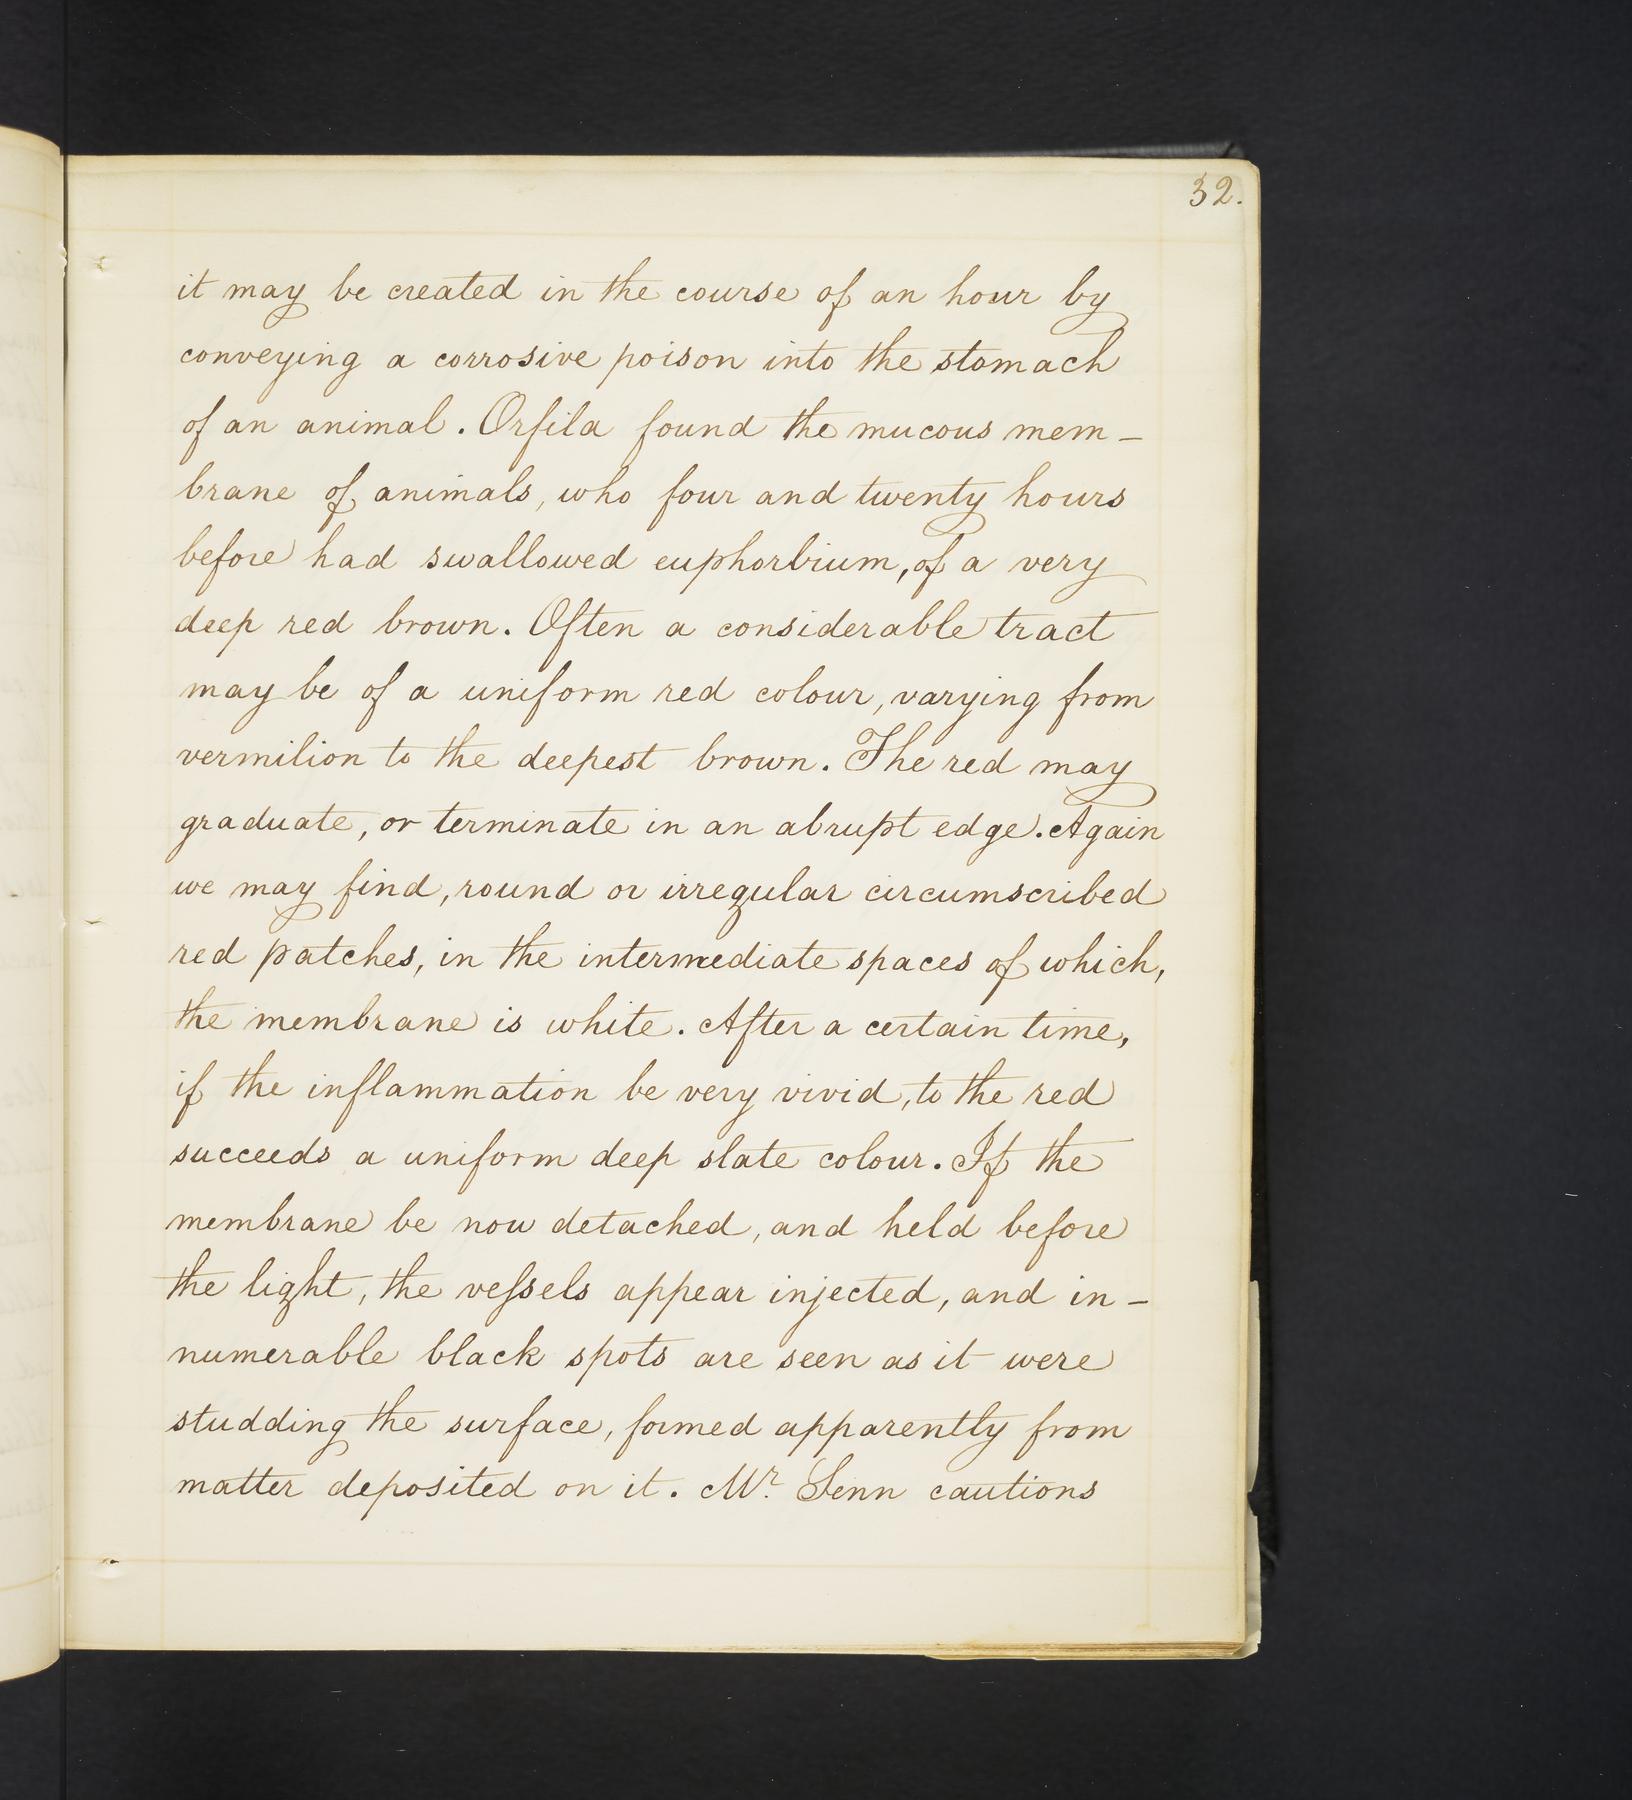 32.
it may be created in the course of an hour by
conveying a corrosive poison into the stomach
of an animal. Orfila found the mucous mem-
brane of animals, who four and twenty hours
before had swallowed euphorbium, of a very
deep red brown. Often a considerable tract
may be of a uniform red colour, varying from
vermilion to the deepest brown. The red may
graduate, or terminate in an abrupt edge. Again
we may find, round or irregular circumscribed
red patches, in the intermediate spaces of which,
the membrane is white. After a certain time,
if the inflammation be very vivid, to the red
succeeds a uniform deep slate colour. If the
membrane be now detached, and held before
the light, the veſsels appear injected, and in-
numerable black spots are seen as it were
studding the surface, formed apparently from
matter deposited on it. Mr. Senn cautions